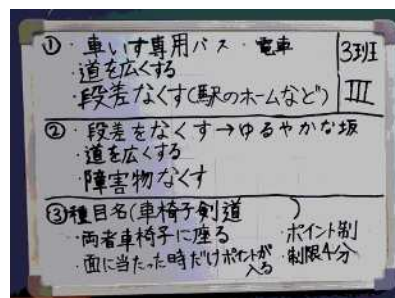 ① ・車いす専用バス・電車
3班
・道を広くする
・段差なくす(駅のホームなど)
III
② ・段差をなくす→ゆるやかな坂
・道を広くする
・障害物なくす
③種目名(車椅子剣道 )
・両者車椅子に座る
・ポイント制
・面に当たった時だけポイントが入る
・制限4分